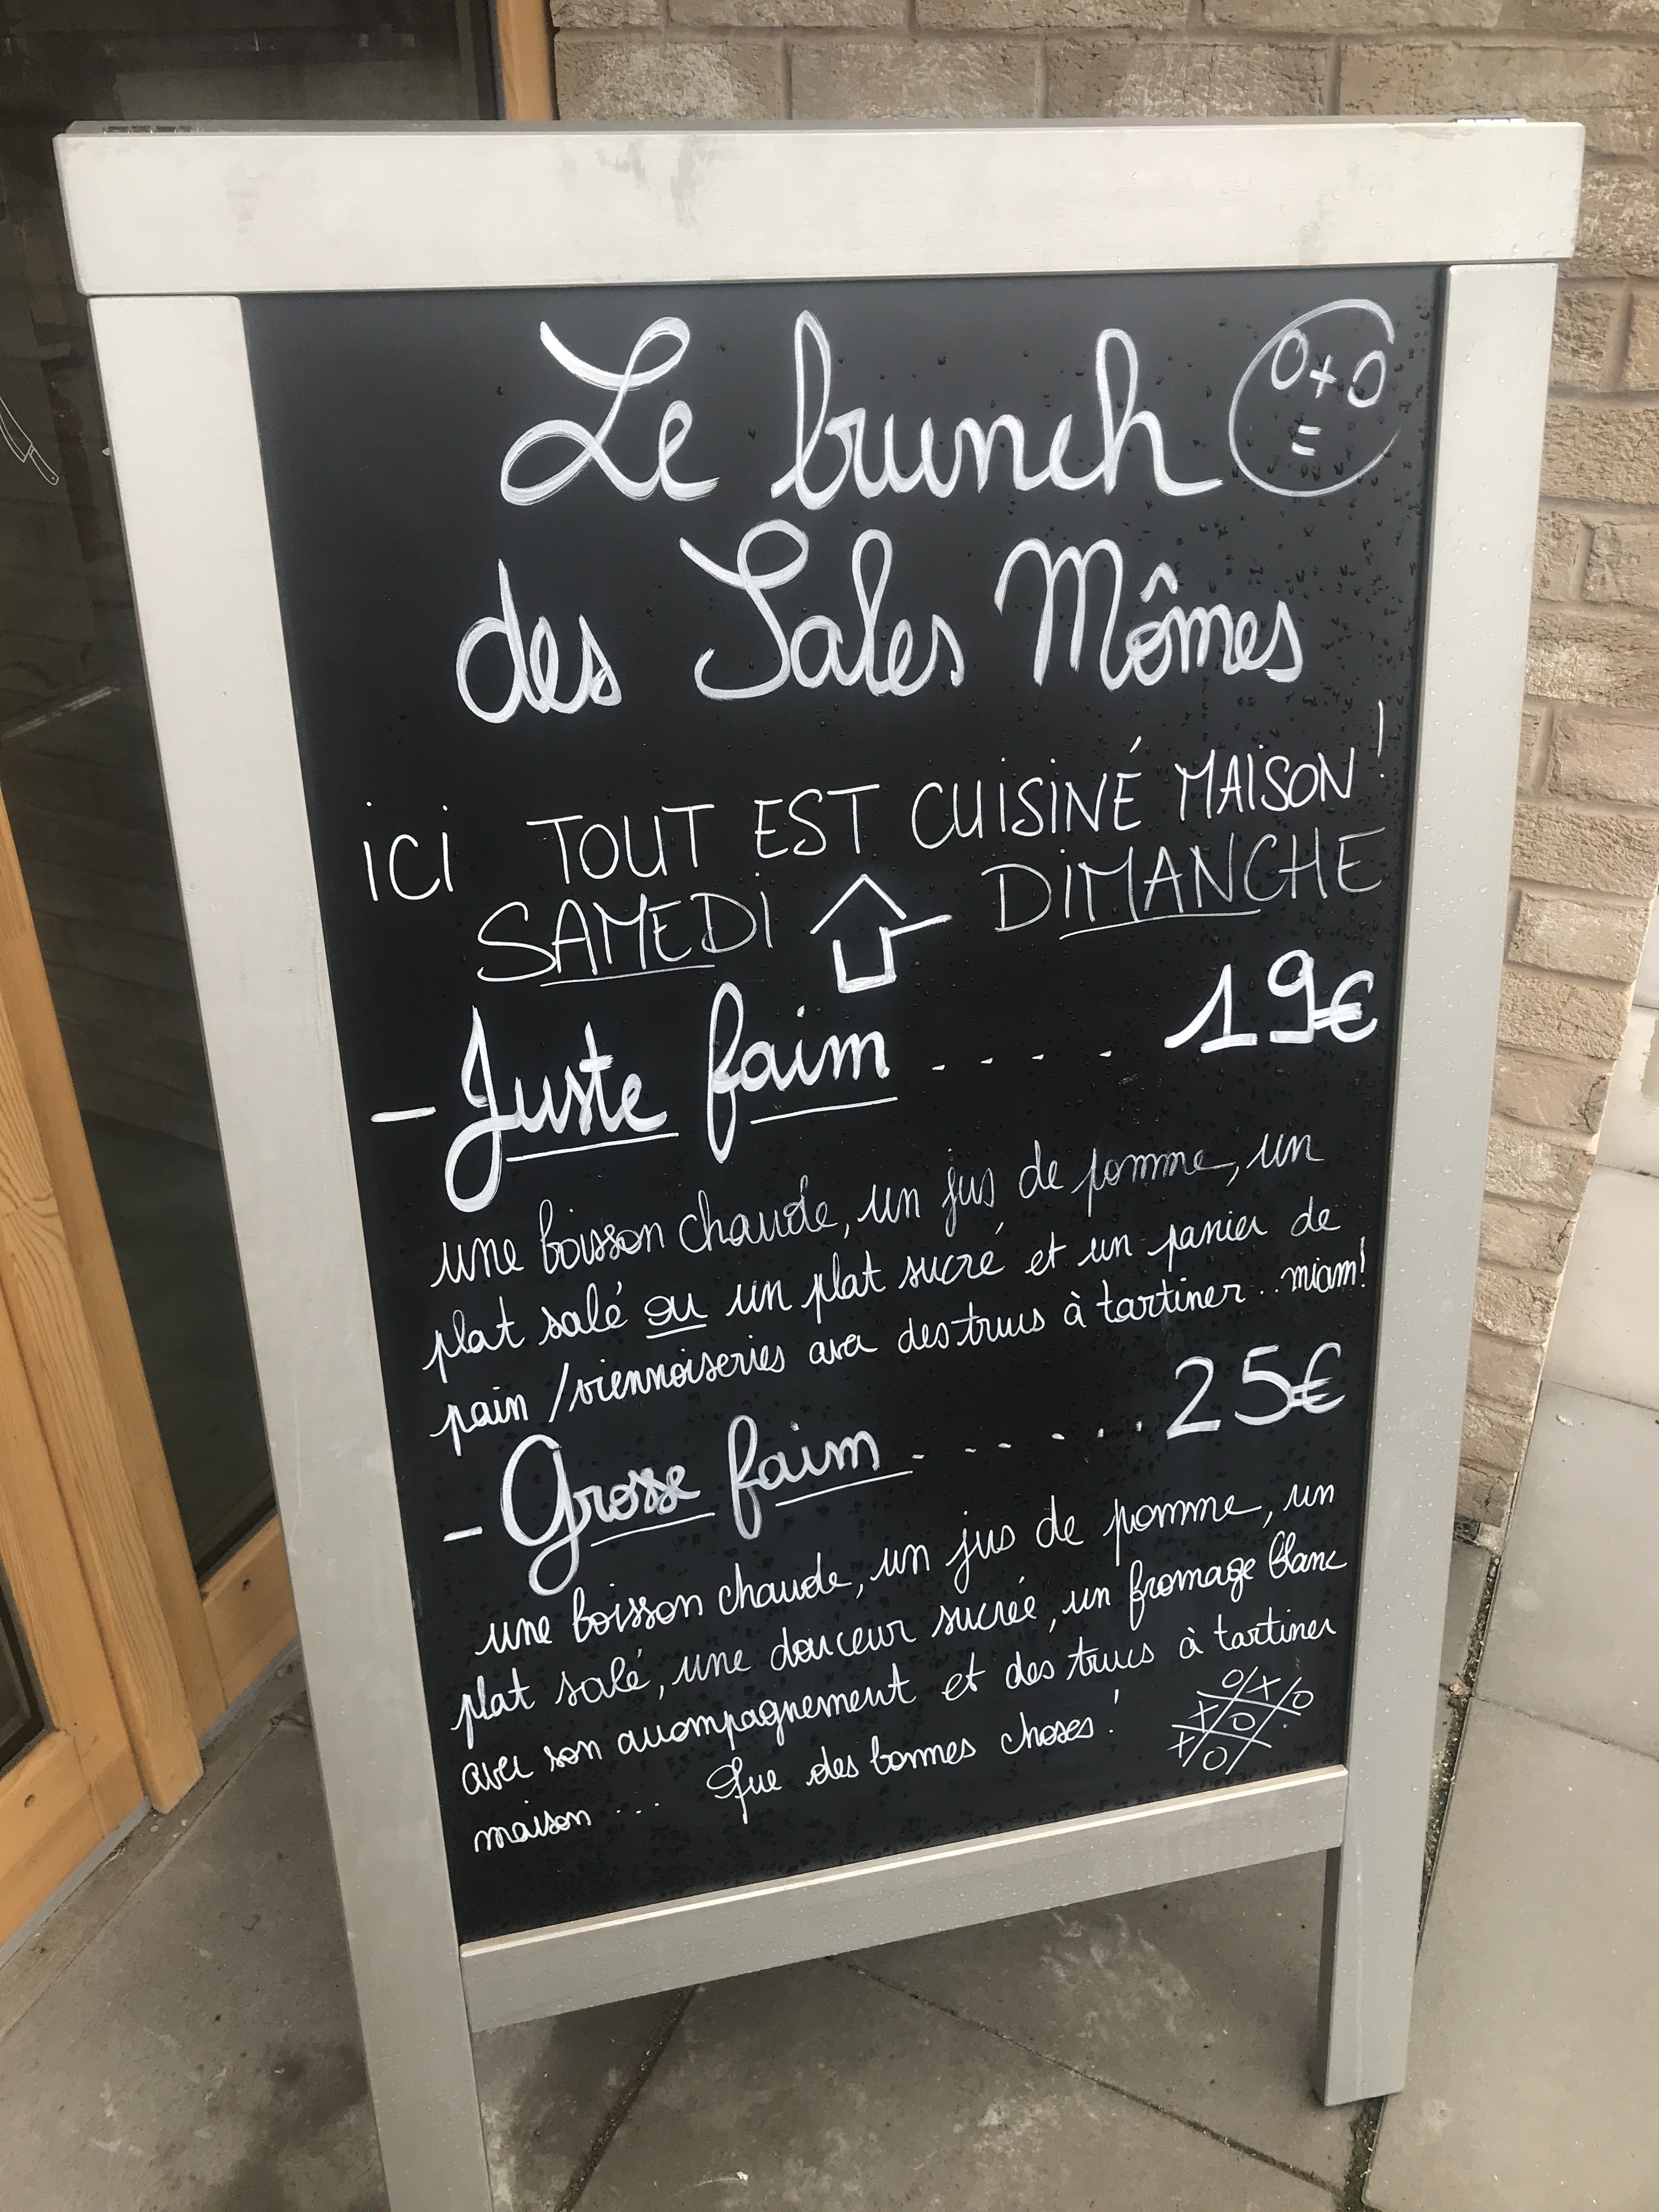 Le brunch
0+0
=
des Sales Mômes
ICI TOUT EST CUISINÉ MAISON !
SAMEDI DIMANCHE
- Juste faim . . . . . 19€
une boisson chaude, un jus de pomme, un
plat salé ou un plat sucré et un panier de
pain / viennoiseries avec des trucs à tartiner... miam!
- Grosse faim . . . . . . . 25€
une boisson chaude, un jus de pomme, un
plat salé, une douceur sucrée, un fromage blanc
avec son accompagnement et des trucs à tartiner
maison ... Que des bonnes choses !
O X O
X O
X O